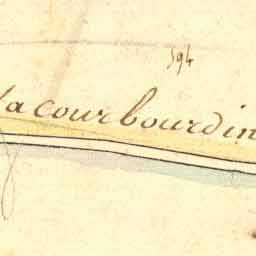 394
la courbourdin